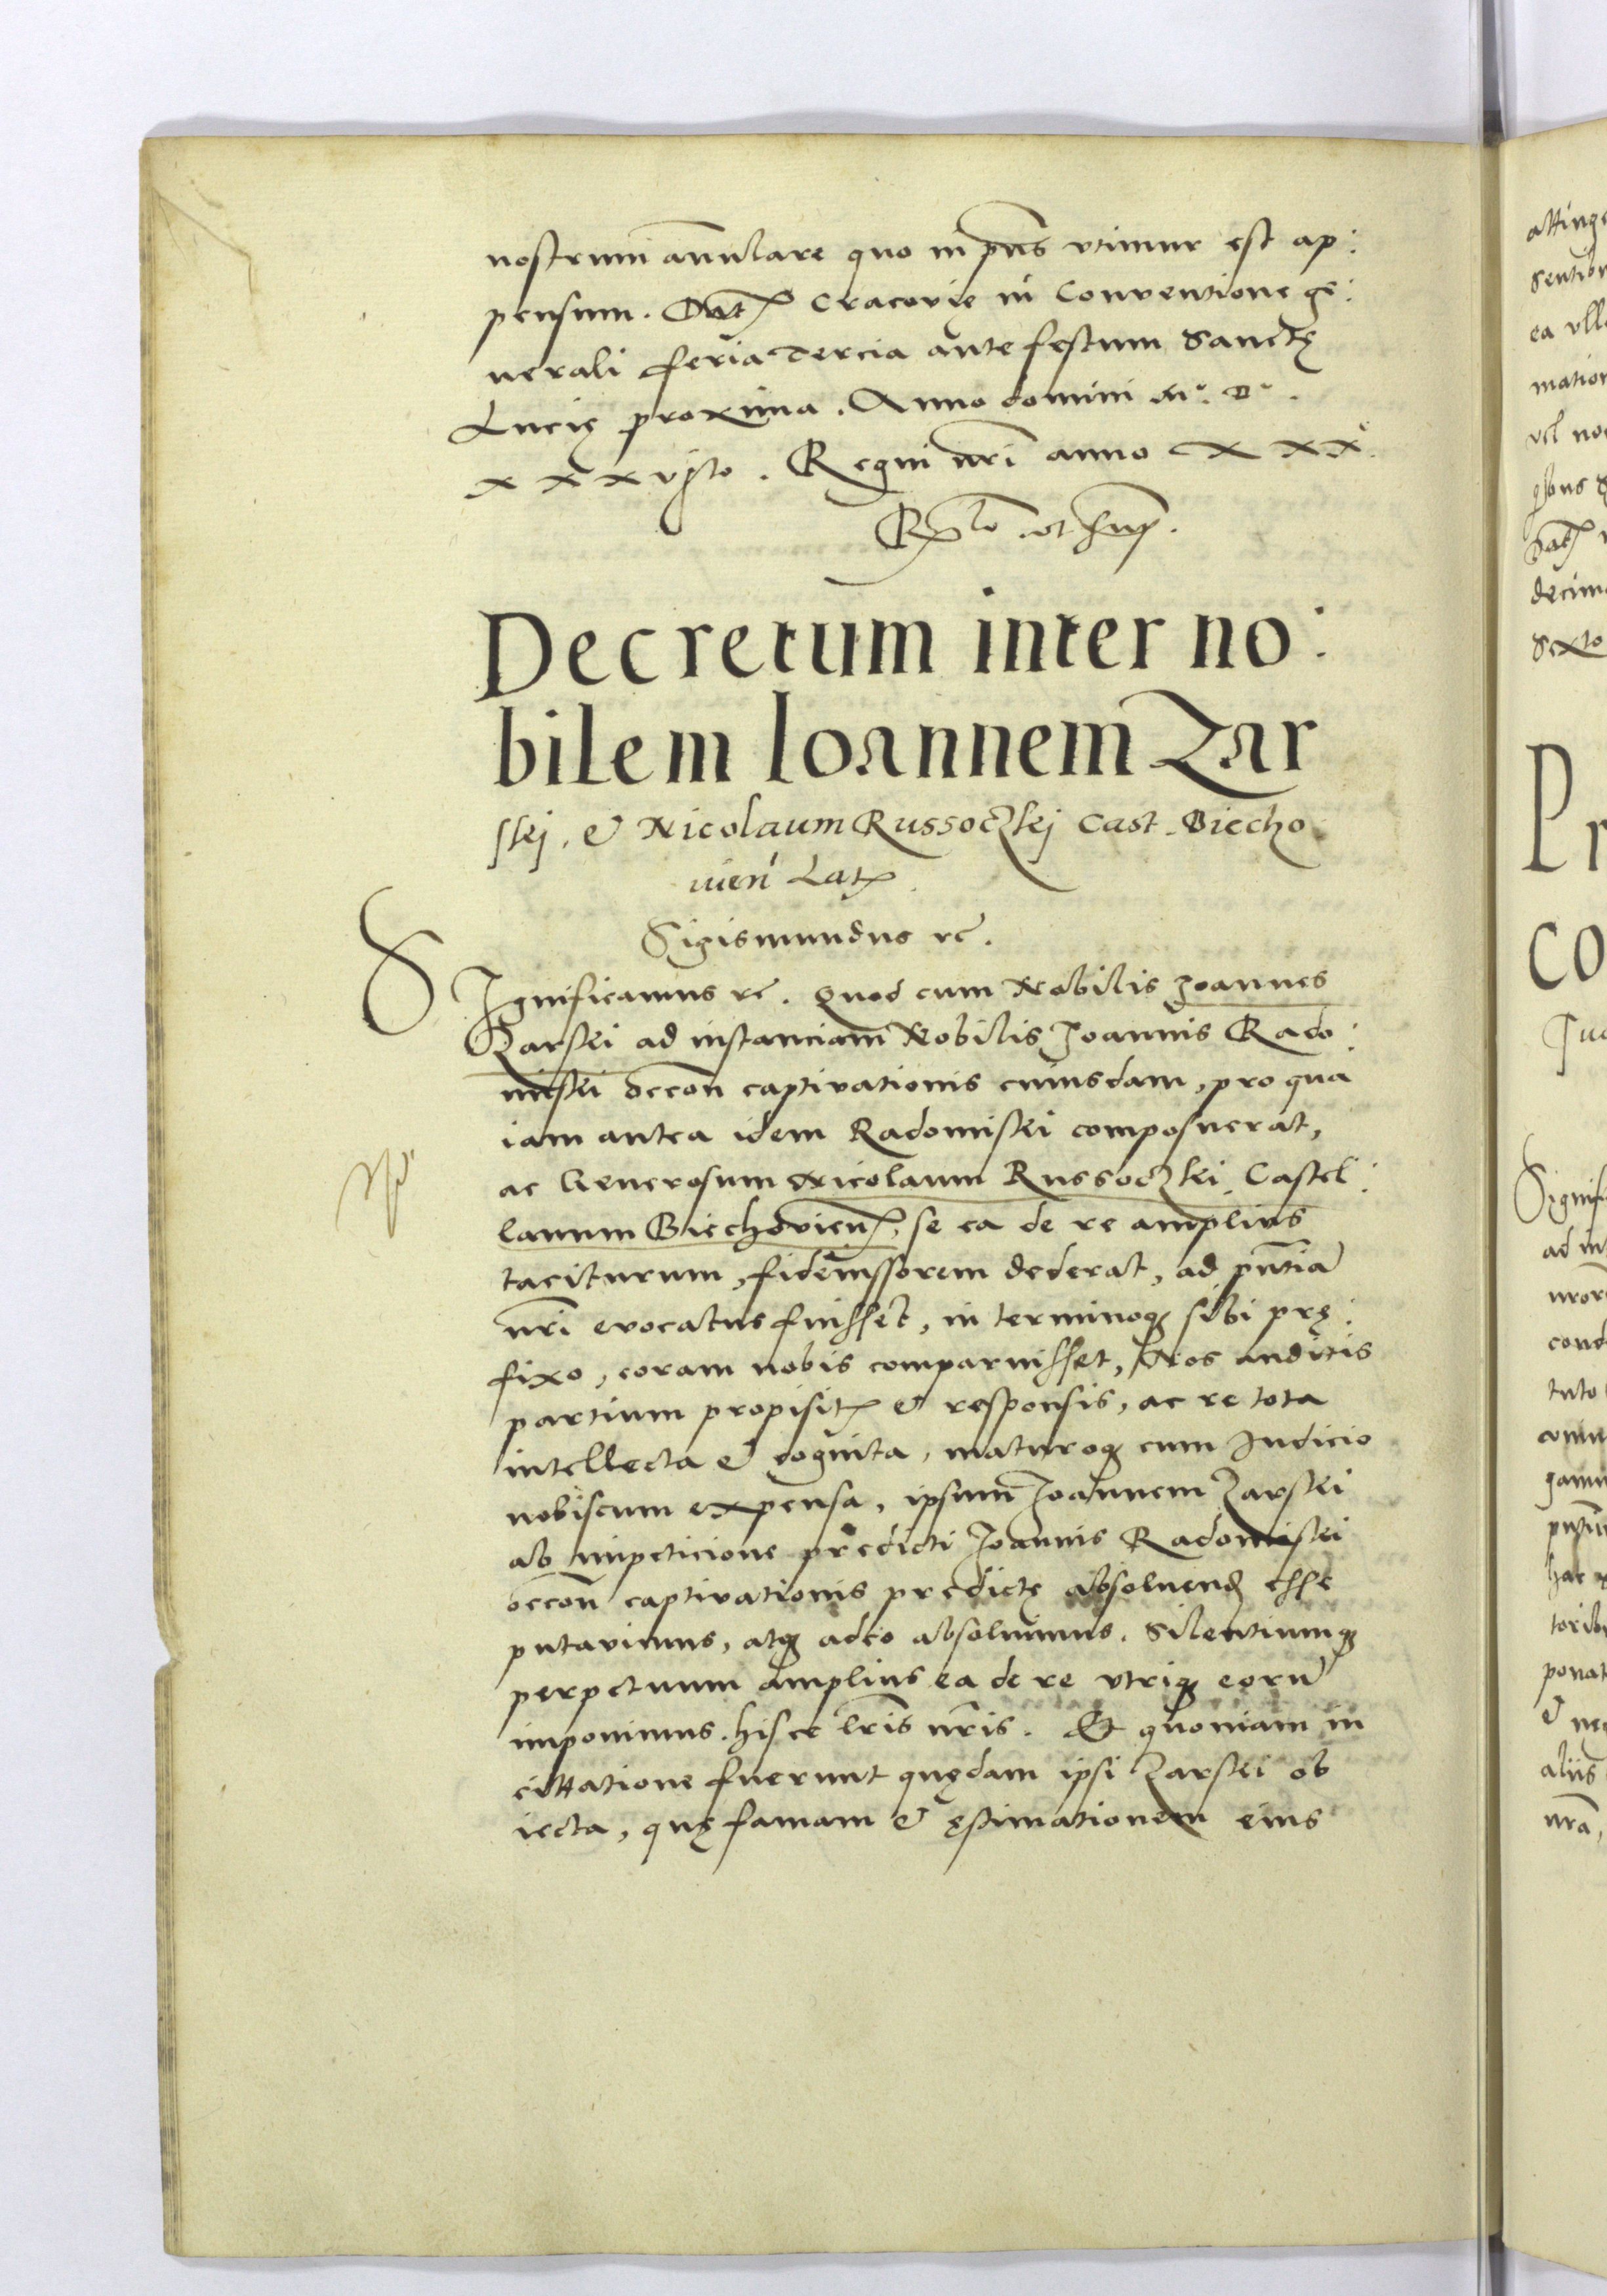 nostrum anulare quo in pñs vtimur est ap:
pensum. Dat Cracovię in Conventione ge:
nerali feria Tercia ante festum Sanctę
Lucię proxima. Anno domini M° D°.
xxxvjto. Regni nri anno xxx°.
Rlo. vt sup.
Decretum inter no:
bilem Ioannem Zar
skej, & Nicolaum Russoczkej Cast. Biecho
vien Lat
Sigismundus rc.
SIgnificamus rc. Quod cum Nobilis Joannes
Zarskei ad instanciam Nobilis Joannis Rado:
miskei occon captivationis cuiusdam, pro qua
iam antea idem Radomiskei composuerat,
ac Generosum Nicolaum Russoczkei Castel:
lanum Biechovien, se ea de re amplius
taciturum, fideiussorem dederat, ad pñtia
nri evocatus fuisset, in terminoq sibi prę:
fixo, coram nobis comparuisset, Nos auditis
partium propisit & responsis, ac re tota
intellecta & cognita, maturoq cum Iudicio
nobiscum expensa, ipsum Joannem Zarskei
ab impeticione predicti Joannis Radomiskei
occon captivationis predictę absoluend esse
putavimus, atq adeo absoluimus. Silentiumq
perpetuum amplius ea de re vtriq eorū
imponimus. hisce lris nris. Et quoniam in
cittatione fuerunt quędam ipsi Zarskei ob
iecta, quę famam & ęstimationem eius
attinge
sentibu
ea vll
mation
vel no
decim
sexto
Pr
co
Signifi
ad in
cond
tuto
hac
ponat
& ne
aliis
nra,